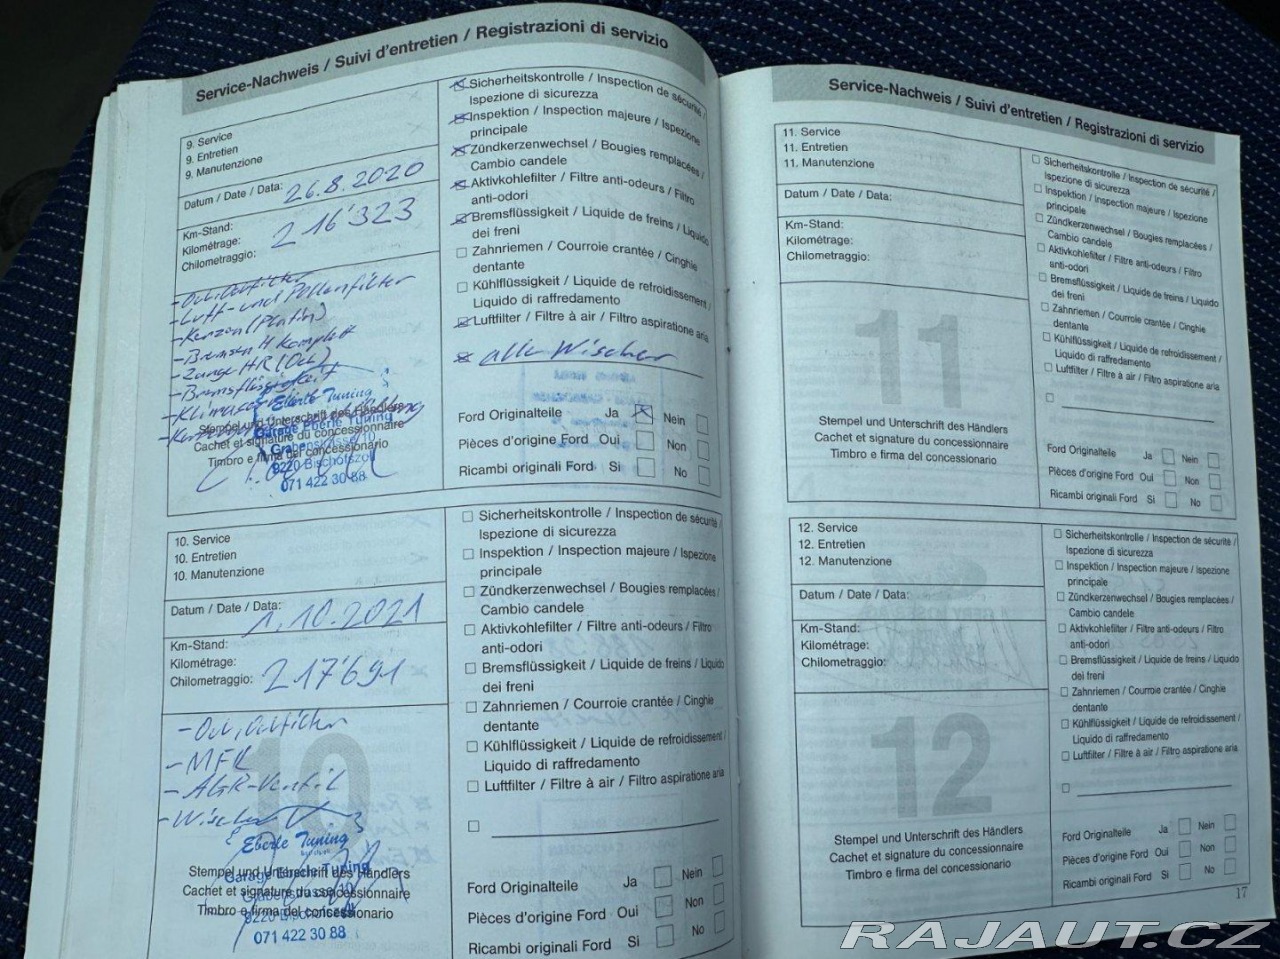 Service-Nachweis / Suivi d'entretien / Registrazioni di servizio
9. Service
9. Entretien
9. Manutenzione
Datum / Date / Data: 26.8.2020
Km-Stand:
Kilométrage: 216'323
Chilometraggio:
- Luft- und Pollenfilter
- Kerzen (Platin)
- Bremsen H komplett
- Bremsflüssigkeit
Eberle Tuning
Stempel und Unterschrift des Händlers
Garage Eberle Tuning
Cachet et signature du concessionnaire
Grabenstrasse 10
Timbro e firma del concessionario
9220 Bischofszell
071 422 30 88
Sicherheitskontrolle / Inspection de sécurité /
Ispezione di sicurezza
Inspektion / Inspection majeure / Ispezione
principale
Zündkerzenwechsel / Bougies remplacées /
Cambio candele
Aktivkohlefilter / Filtre anti-odeurs / Filtro
anti-odori
Bremsflüssigkeit / Liquide de freins / Liquido
dei freni
Zahnriemen / Courroie crantée / Cinghie
dentante
Kühlflüssigkeit / Liquide de refroidissement /
Liquido di raffredamento
Luftfilter / Filtre à air / Filtro aspiratione aria
alle Wischer
Ford Originalteile Ja Nein
Pièces d'origine Ford Oui Non
Ricambi originali Ford Si No
10. Service
10. Entretien
10. Manutenzione
Datum / Date / Data: 1.10.2021
Km-Stand:
Kilométrage:
Chilometraggio: 217'691
10
- MFK
- AGR-Ventil
- Wischer
Eberle Tuning
Garage Eberle Tuning
Stempel und Unterschrift des Händlers
Cachet et signature du concessionnaire
Grabenstrasse 10
Timbro e firma del concessionario
9220 Bischofszell
071 422 30 88
Sicherheitskontrolle / Inspection de sécurité /
Ispezione di sicurezza
Inspektion / Inspection majeure / Ispezione
principale
Zündkerzenwechsel / Bougies remplacées /
Cambio candele
Aktivkohlefilter / Filtre anti-odeurs / Filtro
anti-odori
Bremsflüssigkeit / Liquide de freins / Liquido
dei freni
Zahnriemen / Courroie crantée / Cinghie
dentante
Kühlflüssigkeit / Liquide de refroidissement /
Liquido di raffredamento
Luftfilter / Filtre à air / Filtro aspiratione aria
Ford Originalteile Ja Nein
Pièces d'origine Ford Oui Non
Ricambi originali Ford Si No
Service-Nachweis / Suivi d'entretien / Registrazioni di servizio
11. Service
11. Entretien
11. Manutenzione
Datum / Date / Data:
Km-Stand:
Kilométrage:
Chilometraggio:
11
Stempel und Unterschrift des Händlers
Cachet et signature du concessionnaire
Timbro e firma del concessionario
Sicherheitskontrolle / Inspection de sécurité /
Ispezione di sicurezza
Inspektion / Inspection majeure / Ispezione
principale
Zündkerzenwechsel / Bougies remplacées /
Cambio candele
Aktivkohlefilter / Filtre anti-odeurs / Filtro
anti-odori
Bremsflüssigkeit / Liquide de freins / Liquido
dei freni
Zahnriemen / Courroie crantée / Cinghie
dentante
Kühlflüssigkeit / Liquide de refroidissement /
Liquido di raffredamento
Luftfilter / Filtre à air / Filtro aspiratione aria
Ford Originalteile Ja Nein
Pièces d'origine Ford Oui Non
Ricambi originali Ford Si No
12. Service
12. Entretien
12. Manutenzione
Datum / Date / Data:
Km-Stand:
Kilométrage:
Chilometraggio:
12
Stempel und Unterschrift des Händlers
Cachet et signature du concessionnaire
Timbro e firma del concessionario
Sicherheitskontrolle / Inspection de sécurité /
Ispezione di sicurezza
Inspektion / Inspection majeure / Ispezione
principale
Zündkerzenwechsel / Bougies remplacées /
Cambio candele
Aktivkohlefilter / Filtre anti-odeurs / Filtro
anti-odori
Bremsflüssigkeit / Liquide de freins / Liquido
dei freni
Zahnriemen / Courroie crantée / Cinghie
dentante
Kühlflüssigkeit / Liquide de refroidissement /
Liquido di raffredamento
Luftfilter / Filtre à air / Filtro aspiratione aria
Ford Originalteile Ja Nein
Pièces d'origine Ford Oui Non
Ricambi originali Ford Si No
17
RAJAUT.CZ